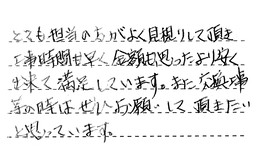 とても担当の方がよく見積りして頂き
工事時間も早く金額も思ったより安く
出来て満足しています。また交換工事
等の時はぜひお願いして頂きたい
と思っています。